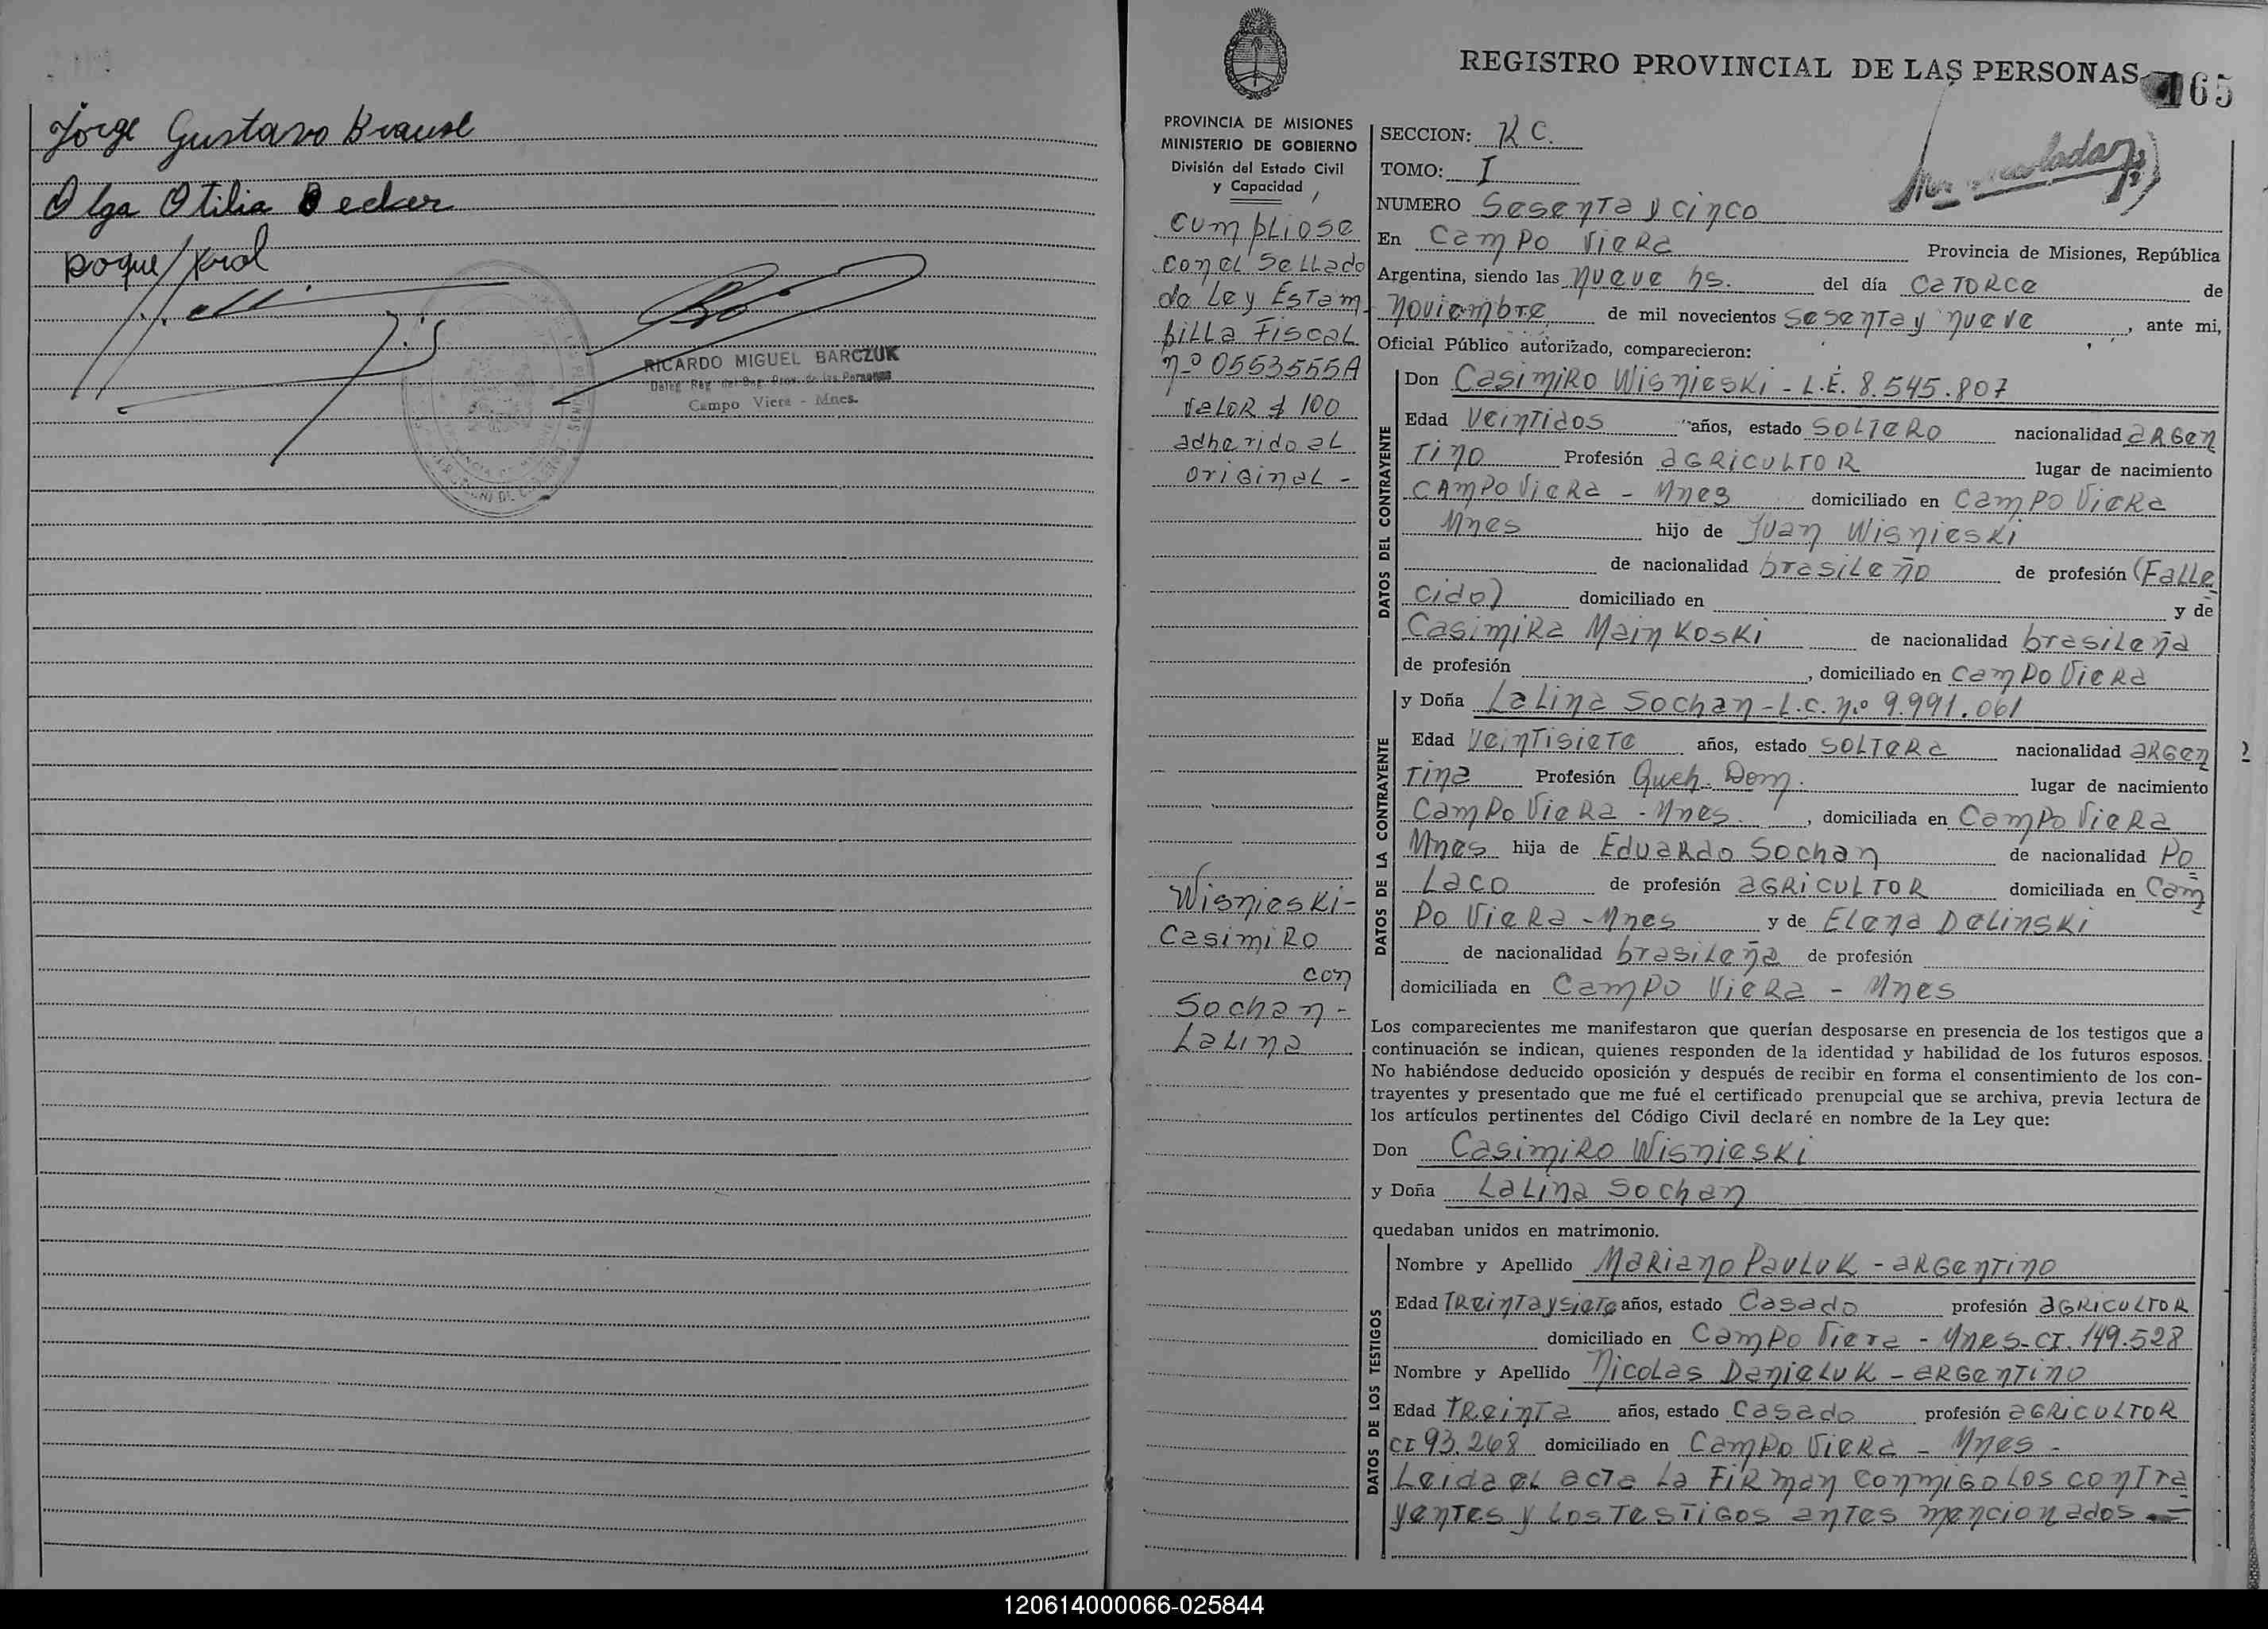 Jorge Gustavo Krause
Olga Otilia Becker
Roque Kral
RICARDO MIGUEL BARCZUK
Deleg. Reg. del Reg. Prov. de las Personas
Campo Viera - Mnes.
REGISTRO PROVINCIAL DE LAS PERSONAS
165
PROVINCIA DE MISIONES
MINISTERIO DE GOBIERNO
División del Estado Civil
y Capacidad
Cumpliose
con el Sellado
de Ley Estam-
pilla Fiscal
nº 0553555A
Valor $ 100
adherido al
original -
Wisnieski-
Casimiro
con
Sochan-
Lalina
SECCION: K C.
TOMO: I
NUMERO Sesenta y cinco
En Campo Viera Provincia de Misiones, República
Argentina, siendo las nueve hs. del día catorce de
noviembre de mil novecientos sesenta y nueve, ante mi,
Oficial Público autorizado, comparecieron:
DATOS DEL CONTRAYENTE
Don Casimiro Wisnieski - L.E. 8.545.807
Edad veintidos años, estado soltero nacionalidad argen
tino Profesión agricultor lugar de nacimiento
Campo Viera - Mnes domiciliado en Campo Viera
Mnes hijo de Juan Wisnieski
de nacionalidad brasileño de profesión (Falle
cido) domiciliado en y de
Casimira Mainkoski de nacionalidad brasileña
de profesión , domiciliado en Campo Viera
DATOS DE LA CONTRAYENTE
y Doña Lalina Sochan - L.C. nº 9.991.061
Edad veintisiete años, estado soltera nacionalidad argen
tina Profesión Queh. Dom. lugar de nacimiento
Campo Viera - Mnes. , domiciliada en Campo Viera
Mnes hija de Eduardo Sochan de nacionalidad Po
laco de profesión agricultor domiciliada en Cam
po Viera - Mnes y de Elena Delinski
de nacionalidad brasileña de profesión
domiciliada en Campo Viera - Mnes
Los comparecientes me manifestaron que querían desposarse en presencia de los testigos que a
continuación se indican, quienes responden de la identidad y habilidad de los futuros esposos.
No habiéndose deducido oposición y después de recibir en forma el consentimiento de los con-
trayentes y presentado que me fué el certificado prenupcial que se archiva, previa lectura de
los artículos pertinentes del Código Civil declaré en nombre de la Ley que:
Don Casimiro Wisnieski
y Doña Lalina Sochan
quedaban unidos en matrimonio.
DATOS DE LOS TESTIGOS
Nombre y Apellido Mariano Pauluk - argentino
Edad treinta y siete años, estado Casado profesión agricultor
domiciliado en Campo Viera - Mnes - CI. 149.528
Nombre y Apellido Nicolas Danieluk - argentino
Edad treinta años, estado casado profesión agricultor
CI 93.268 domiciliado en Campo Viera - Mnes -
Leida el acta la firman conmigo los contra
yentes y los testigos antes mencionados. =
120614000066-025844